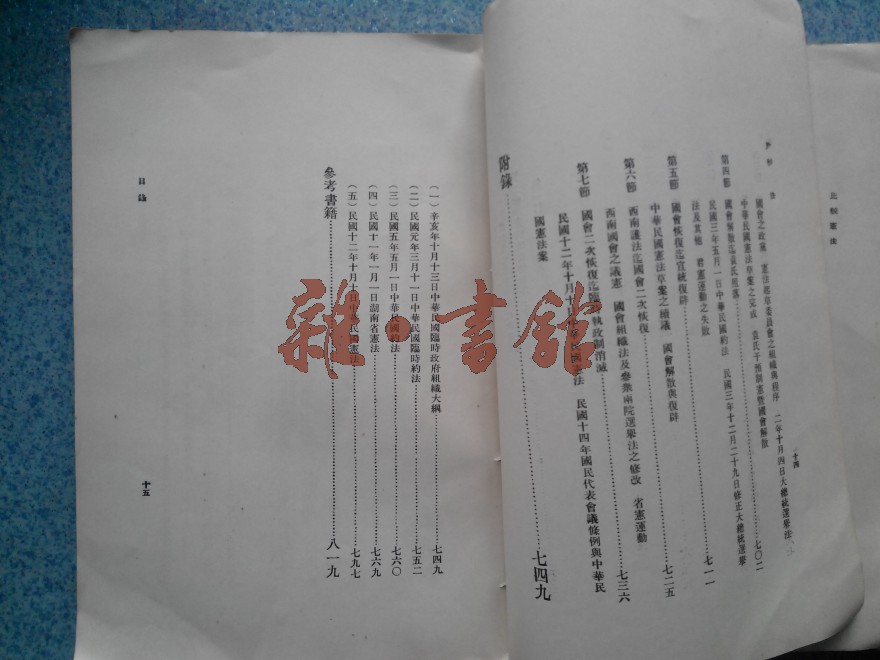 比較憲法
十四
國會之政黨　憲法起草委員會之組織與程序　二年十月四日大總統選舉法
中華民國憲法草案之完成　袁氏干預制憲暨國會解散
第四節　國會解散迄袁氏殂落……七〇二
民國三年五月一日中華民國約法　民國三年十二月二十九日修正大總統選舉
法及其他　君憲運動之失敗
第五節　國會恢復迄宣統復辟……七一一
中華民國憲法草案之續議　國會解散與復辟
第六節　西南護法迄國會二次恢復……七二五
西南國會之議憲　國會組織法及參衆兩院選舉法之修改　省憲運動
第七節　國會二次恢復迄臨時執政制消滅……七三六
民國十二年十月十日中華民國憲法　民國十四年國民代表會議條例與中華民
國憲法案
附錄……七四九
（一）辛亥年十月十三日中華民國臨時政府組織大綱……七四九
（二）民國元年三月十一日中華民國臨時約法……七五二
（三）民國五年五月一日中華民國約法……七六〇
（四）民國十一年一月一日湖南省憲法……七六九
（五）民國十二年十月十日中華民國憲法……七九七
參考書籍……八一九
目錄
十五
雜·書館